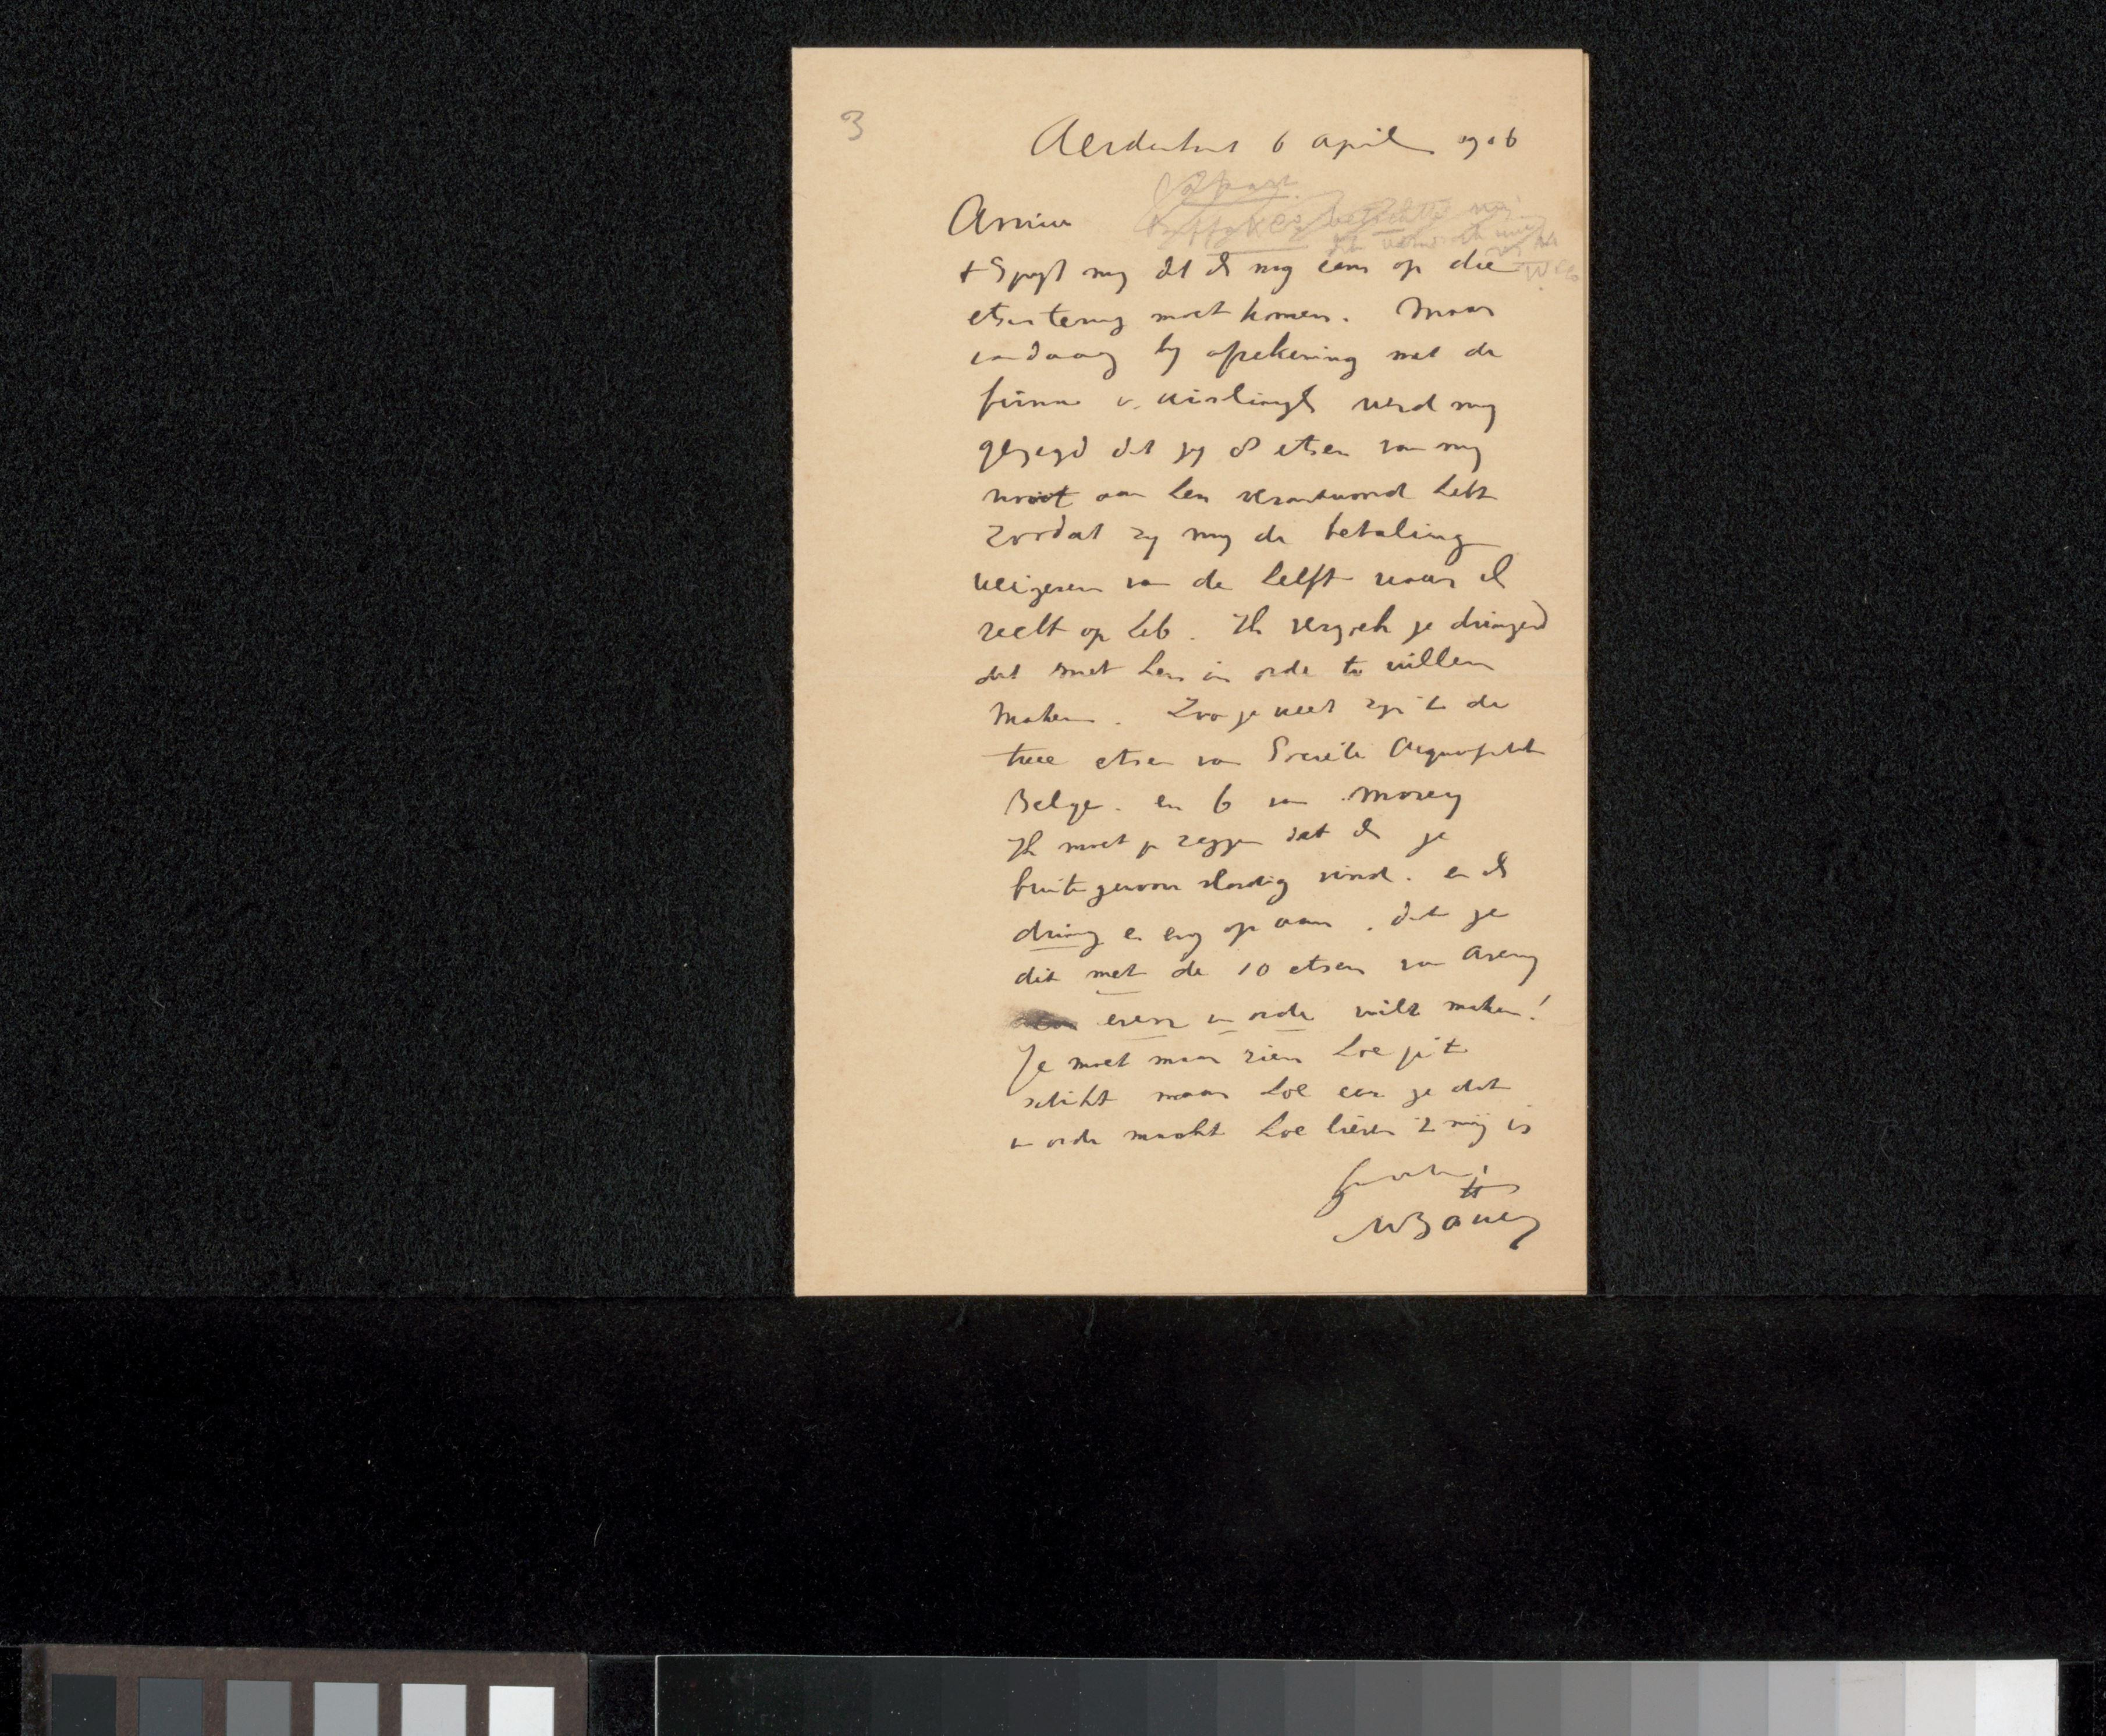 3
Aerdenhout 6 april 1906
Amice
't Spyt my dat ik nog eens op die
etsen terug moet komen. Maar
vandaag by afrekening met de
firma v. Wisselingh werd my
gezegd dat jy 8 etsen van my
nooit aan hen verantwoord hebt
zoodat zy my de betaling
weigeren van de helft waar ik
recht op heb. Ik verzoek je dringend
dat met hen in orde te willen
maken. Zoo je weet zyn 't de
twee etsen van Société Aquafortiste
Belge. en 6 van
Ik moet je zeggen dat ik je
buitengewoon slordig vind. en ik
dring er erg op aan. dat je
dit met de 10 etsen van
even in orde wilt maken!
Je moet maar zien hoe je 't
schikt maar hoe eer je dat
in orde maakt hoe liever 't mij is
Gegroet
MBauer